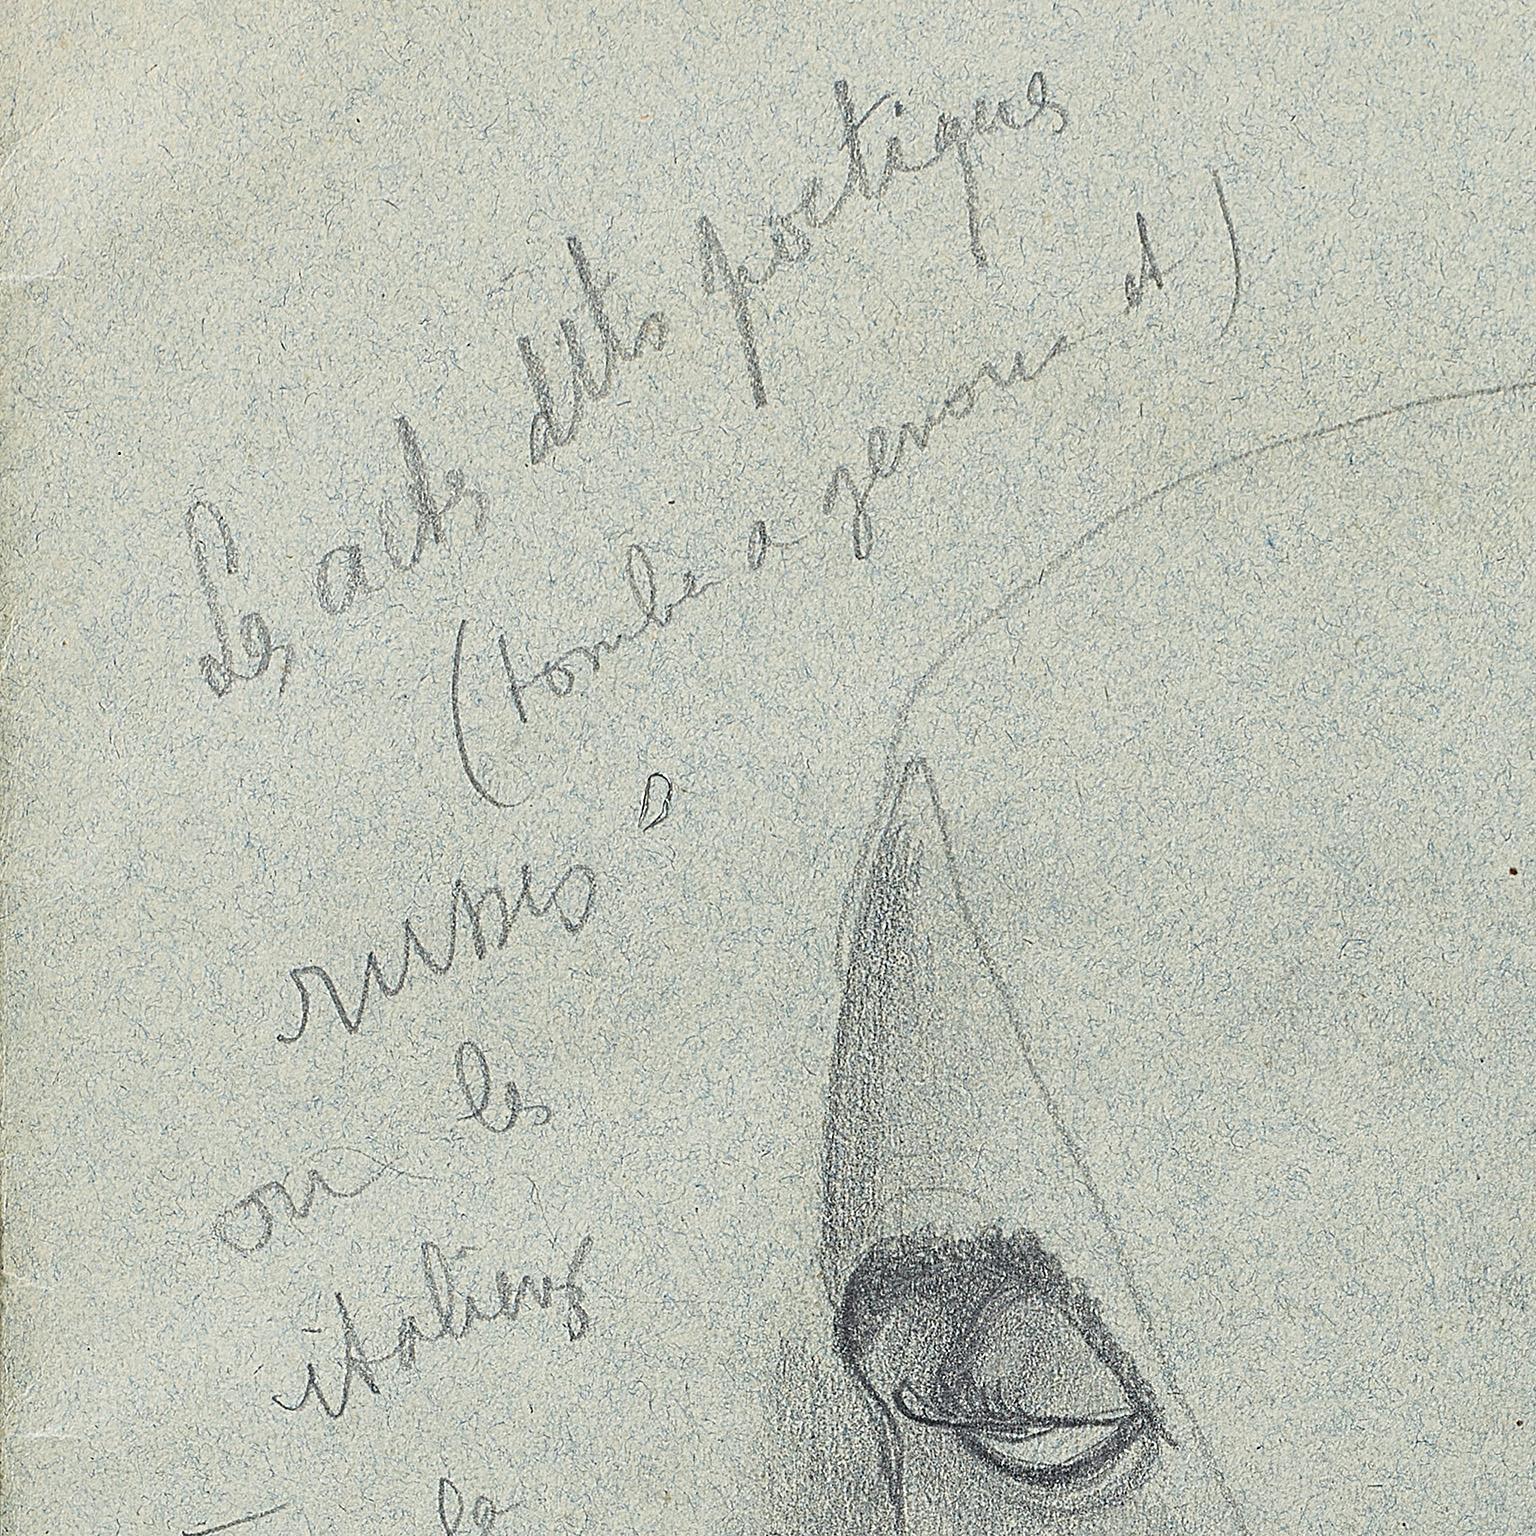 Les acts dits poetiques
(tombe a genou et)
russes
ou les
italiens
la